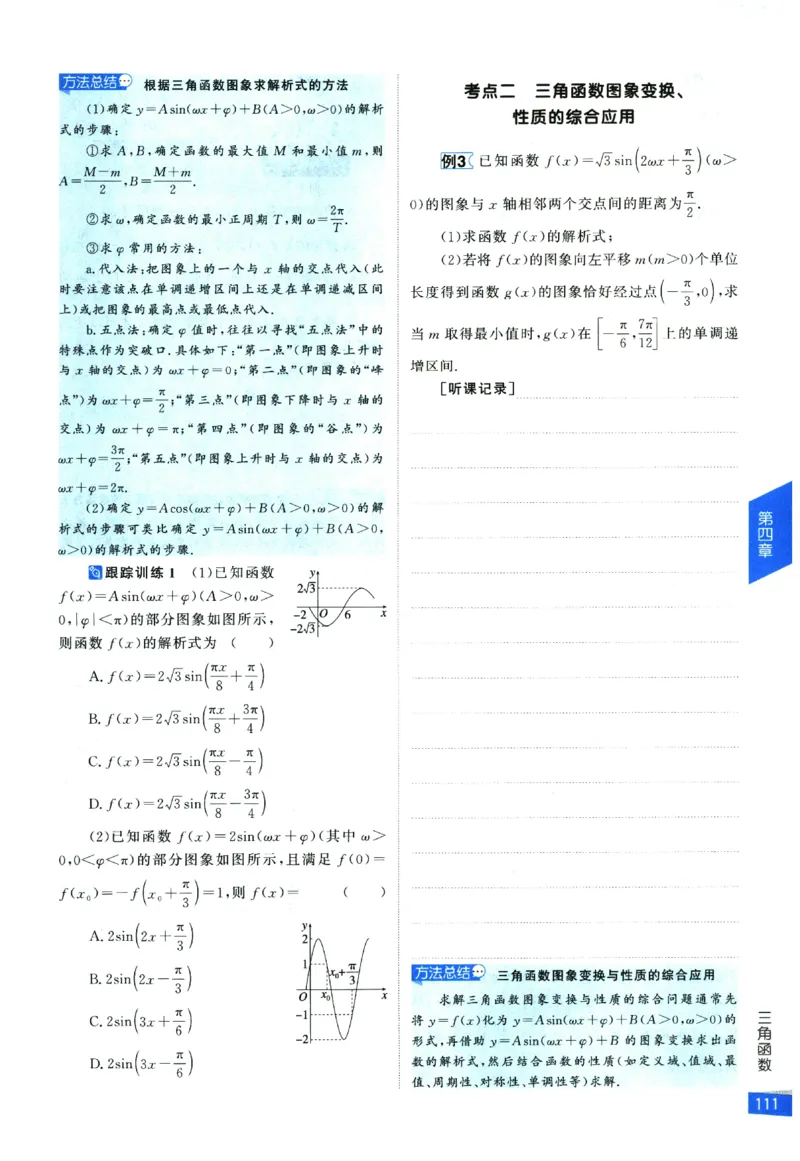 方法总结 根据三角函数图象求解析式的方法
(1)确定 y=Asin(ωx+φ)+B(A>0,ω>0)的解析
式的步骤:
①求 A,B,确定函数的最大值 M 和最小值 m,则
A=\frac{M-m}{2},B=\frac{M+m}{2}.
②求 ω,确定函数的最小正周期 T,则 ω=\frac{2π}{T}.
③求 φ 常用的方法:
a.代入法:把图象上的一个与 x 轴的交点代入(此
时要注意该点在单调递增区间上还是在单调递减区间
上)或把图象的最高点或最低点代入.
b.五点法:确定 φ 值时,往往以寻找“五点法”中的
特殊点作为突破口.具体如下:“第一点”(即图象上升时
与 x 轴的交点)为 ωx+φ=0;“第二点”(即图象的“峰
点”)为 ωx+φ=\frac{π}{2};“第三点”(即图象下降时与 x 轴的
交点)为 ωx+φ=π;“第四点”(即图象的“谷点”)为
ωx+φ=\frac{3π}{2};“第五点”(即图象上升时与 x 轴的交点)为
ωx+φ=2π.
(2)确定 y=Acos(ωx+φ)+B(A>0,ω>0)的解
析式的步骤可类比确定 y=Asin(ωx+φ)+B(A>0,
ω>0)的解析式的步骤.
跟踪训练 1 (1)已知函数
f(x)=Asin(ωx+φ)(A>0,ω>
0,|φ|<π)的部分图象如图所示,
则函数 f(x)的解析式为 ( )
y
2√3
-2 O 6 x
-2√3
A. f(x)=2√3 sin(\frac{πx}{8}+\frac{π}{4})
B. f(x)=2√3 sin(\frac{πx}{8}+\frac{3π}{4})
C. f(x)=2√3 sin(\frac{πx}{8}-\frac{π}{4})
D. f(x)=2√3 sin(\frac{πx}{8}-\frac{3π}{4})
(2)已知函数 f(x)=2sin(ωx+φ)(其中 ω>
0,0<φ<π)的部分图象如图所示,且满足 f(0)=
f(x₀)=-f(x₀+\frac{π}{3})=1,则 f(x)= ( )
A. 2sin(2x+\frac{π}{3})
B. 2sin(2x-\frac{π}{3})
C. 2sin(3x+\frac{π}{6})
D. 2sin(3x-\frac{π}{6})
y
2
1
x₀+\frac{π}{3}
O x₀ x
-1
-2
考点二 三角函数图象变换、
性质的综合应用
例3 已知函数 f(x)=√3 sin(2ωx+\frac{π}{3})(ω>
0)的图象与 x 轴相邻两个交点间的距离为\frac{π}{2}.
(1)求函数 f(x)的解析式;
(2)若将 f(x)的图象向左平移 m(m>0)个单位
长度得到函数 g(x)的图象恰好经过点(-\frac{π}{3},0),求
当 m 取得最小值时,g(x)在[-\frac{π}{6},\frac{7π}{12}]上的单调递
增区间.
[听课记录]
方法总结 三角函数图象变换与性质的综合应用
求解三角函数图象变换与性质的综合问题通常先
将 y=f(x)化为 y=Asin(ωx+φ)+B(A>0,ω>0)的
形式,再借助 y=Asin(ωx+φ)+B 的图象变换求出函
数的解析式,然后结合函数的性质(如定义域、值域、最
值、周期性、对称性、单调性等)求解.
第四章
三角函数
111